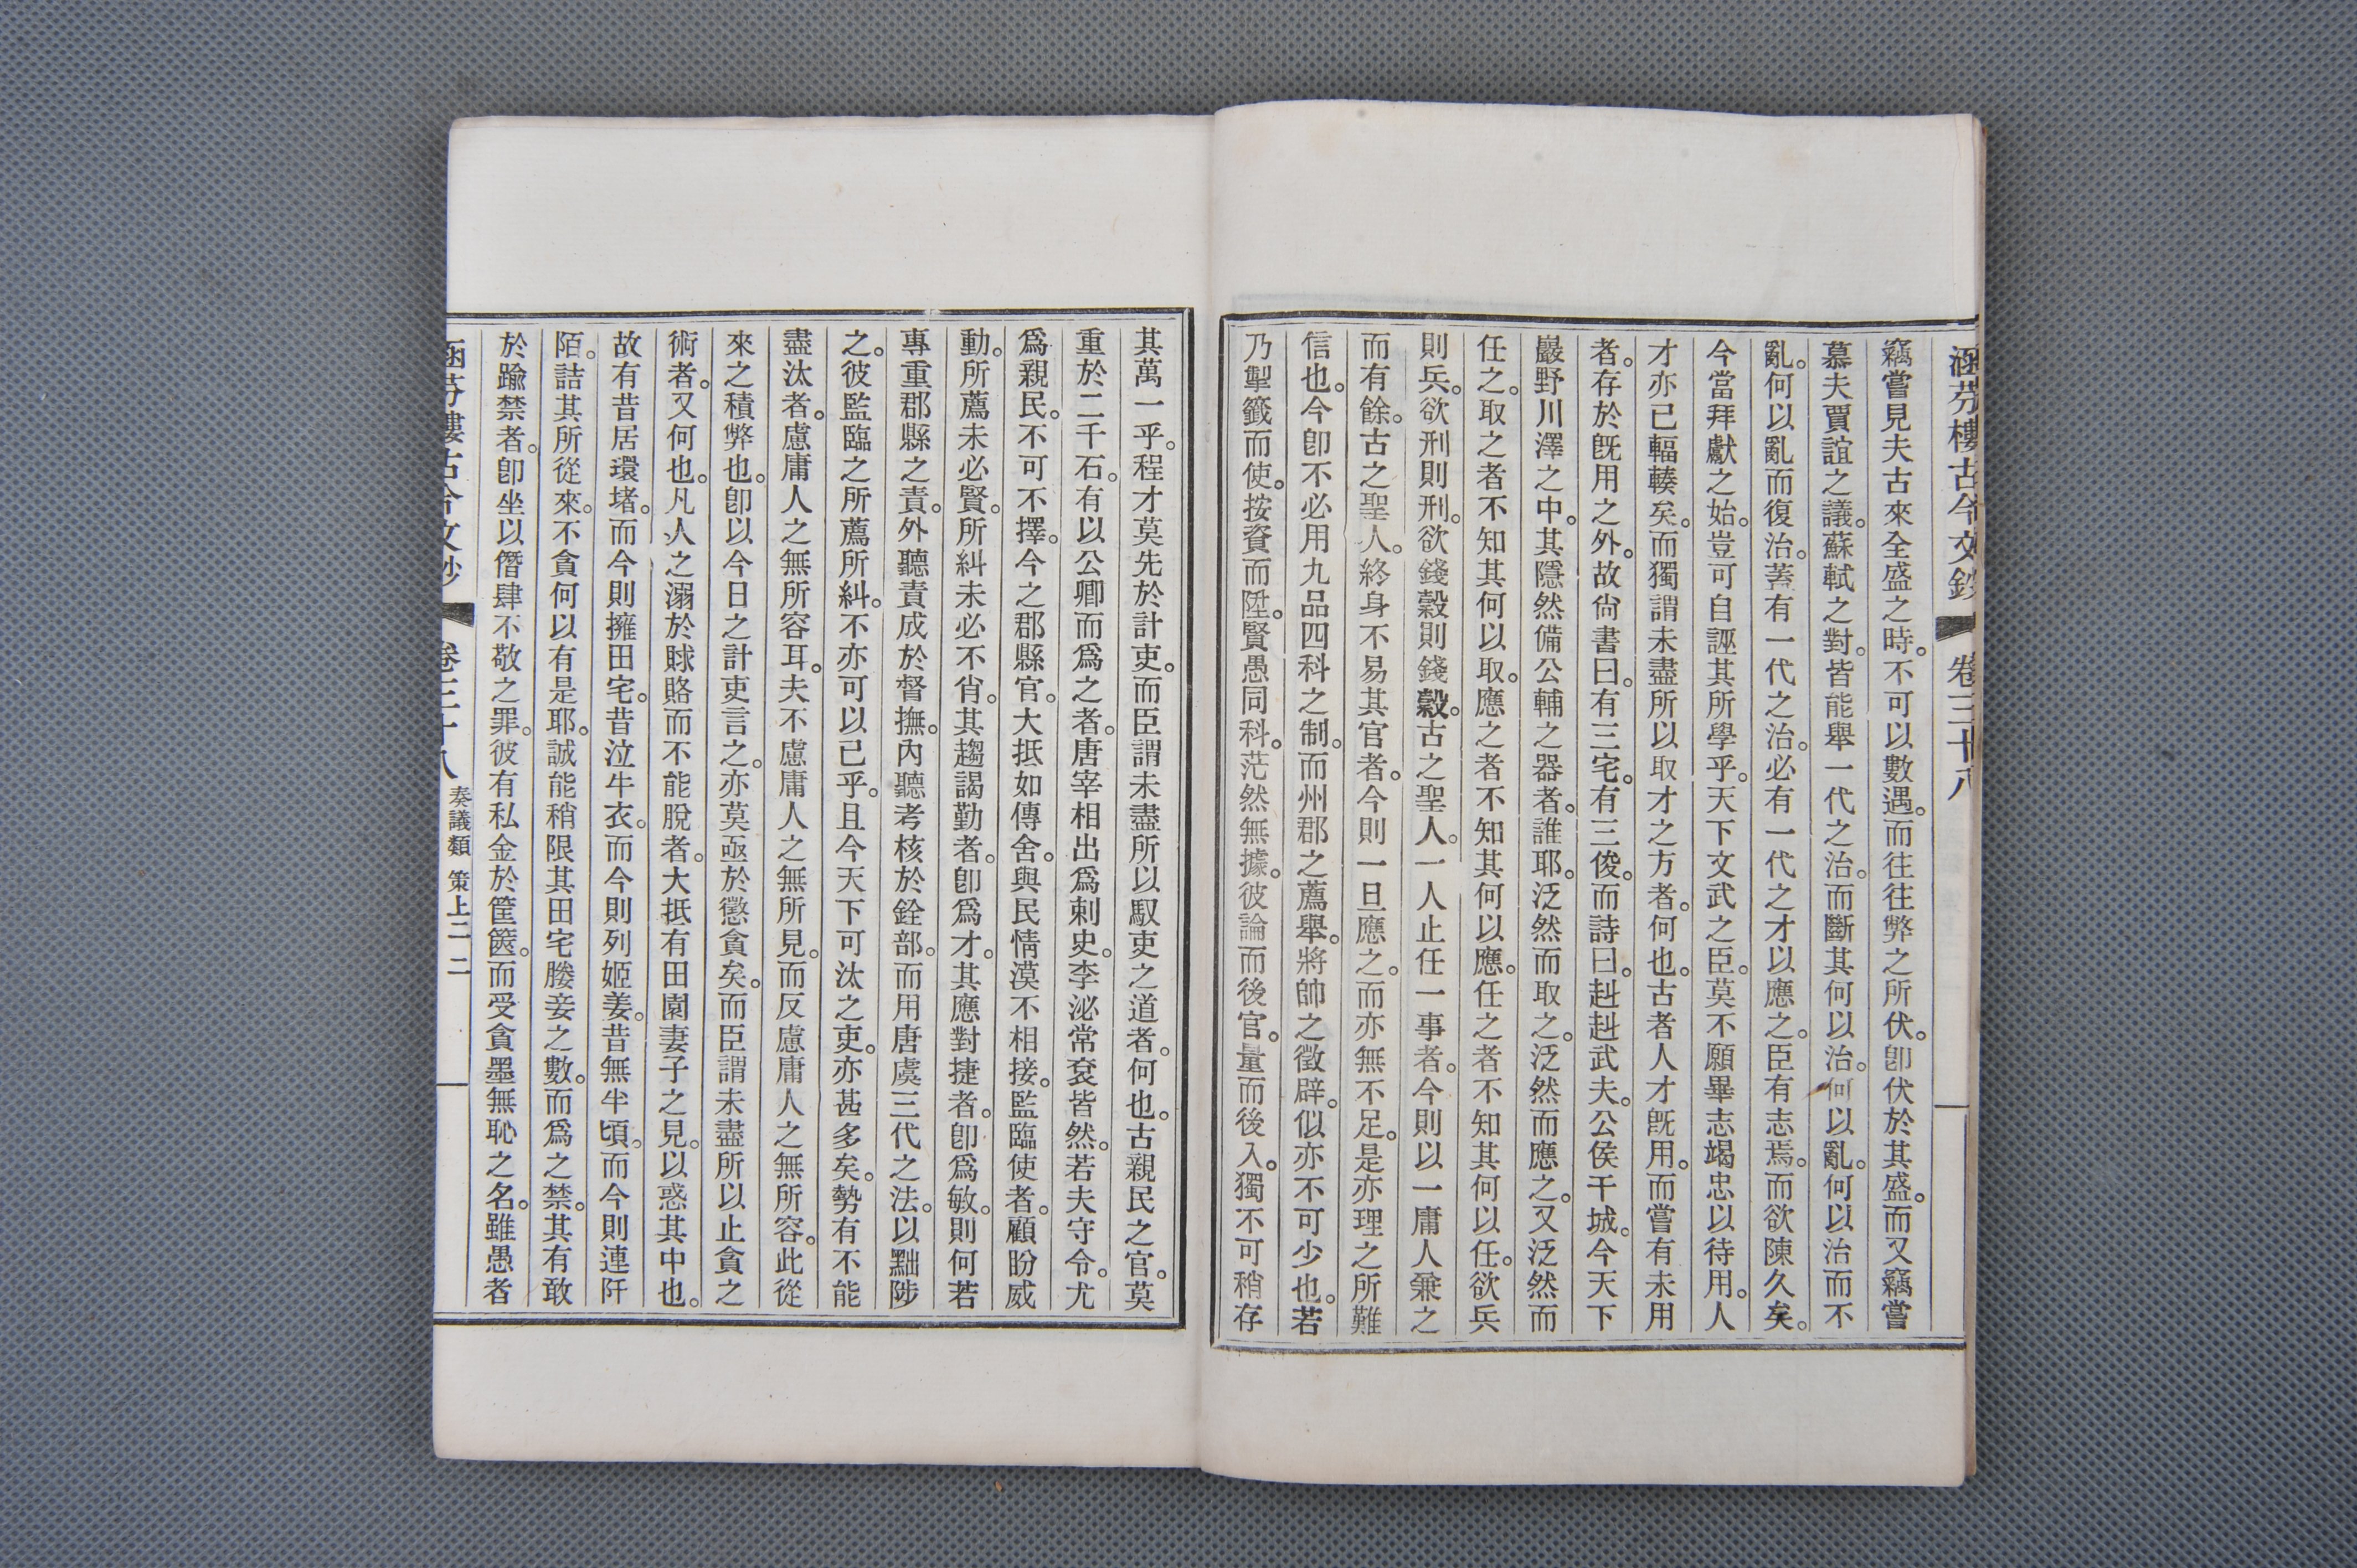 涵芬樓古今文鈔 卷三十八
竊嘗見夫古來全盛之時。不可以數遇。而往往弊之所伏。卽伏於其盛。而又竊嘗
慕夫賈誼之議。蘇軾之對。皆能舉一代之治。而斷其何以治。何以亂。何以治而不
亂。何以亂而復治。蓋有一代之治。必有一代之才以應之。臣有志焉。而欲陳久矣。
今當拜獻之始。豈可自誣其所學乎。天下文武之臣。莫不願畢志竭忠以待用。人
才亦已輻輳矣。而獨謂未盡所以取才之方者。何也。古者人才旣用。而嘗有未用
者。存於旣用之外。故尙書曰。有三宅。有三俊。而詩曰。赳赳武夫。公侯干城。今天下
巖野川澤之中。其隱然備公輔之器者。誰耶。泛然而取之。泛然而應之。又泛然而
任之。取之者不知其何以取。應之者不知其何以應。任之者不知其何以任。欲兵
則兵。欲刑則刑。欲錢穀則錢穀。古之聖人。一人止任一事者。今則以一庸人兼之
而有餘。古之聖人。終身不易其官者。今則一旦應之。而亦無不足。是亦理之所難
信也。今卽不必用九品四科之制。而州郡之薦舉。將帥之徵辟。似亦不可少也。若
乃掣籤而使。按資而陞。賢愚同科。茫然無據。彼論而後官。量而後入。獨不可稍存
其萬一乎。程才莫先於計吏。而臣謂未盡所以馭吏之道者。何也。古親民之官。莫
重於二千石。有以公卿而爲之者。唐宰相出爲刺史。李泌常袞皆然。若夫守令。尤
爲親民。不可不擇。今之郡縣官。大抵如傳舍。與民情漠不相接。監臨使者。顧盼威
動。所薦未必賢。所糾未必不肖。其趨謁勤者。卽爲才。其應對捷者。卽爲敏。則何若
專重郡縣之責。外聽責成於督撫。內聽考核於銓部。而用唐虞三代之法。以黜陟
之。彼監臨之所薦所糾。不亦可以已乎。且今天下可汰之吏。亦甚多矣。勢有不能
盡汰者。慮庸人之無所容耳。夫不慮庸人之無所見。而反慮庸人之無所容。此從
來之積弊也。卽以今日之計吏言之。亦莫亟於懲貪矣。而臣謂未盡所以止貪之
術者。又何也。凡人之溺於賕賂而不能脫者。大抵有田園妻子之見。以惑其中也。
故有昔居環堵。而今則擁田宅。昔泣牛衣。而今則列姬姜。昔無半頃。而今則連阡
陌。詰其所從來。不貪何以有是耶。誠能稍限其田宅媵妾之數。而爲之禁。其有敢
於踰禁者。卽坐以僭肆不敬之罪。彼有私金於筐篋。而受貪墨無恥之名。雖愚者
涵芬樓古今文鈔 卷三十八 奏議類 策上二 二